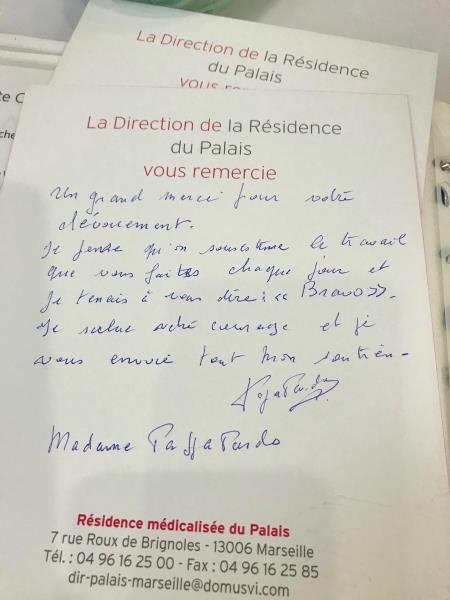 La Direction de la Résidence
du Palais
vous
La Direction de la Résidence
du Palais
vous remercie
Un grand merci pour votre
dévouement.
Je pense qu'on sousestime le travail
que vous faites chaque jour et
je tenais à vous dire : << Bravo >>.
Je salue votre courage et je
vous envoie tout mon soutien -
Madame
Résidence médicalisée du Palais
7 rue Roux de Brignoles - 13006 Marseille
Tél. : 04 96 16 25 00 - Fax : 04 96 16 25 85
dir-palais-marseille@domusvi.com